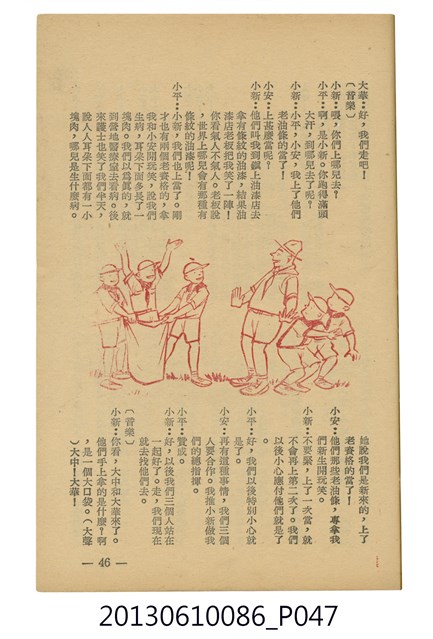 大華：好，我們走吧！
（音樂）
小新：喂，你們上哪兒去？
小平：啊，是小新。你跑得滿頭
大汗，到哪兒去了呢？
小新：小平，小安，我上了他們
老油條的當了！
小安：上甚麼當呢？
小新：他們叫我到鎮上油漆店去
拿有條紋的油漆，結果油
漆店老板把我笑了一陣！
你看氣人不氣人。老板說
，世界上哪兒會有那種有
條紋的油漆呢！
小平：小新，我們也上當了。剛
才也有兩個老資格的，拿
我和小安開玩笑，說我們
生病，耳朵下面多長了一
塊肉。我們以爲眞的，就
到營地醫療室去看病。後
來護士也笑了我們半天，
說人人耳朵下面都有一小
塊肉，哪兒是生什麼病。
她說我們是新來的，上了
老資格的當了！
小安：他們那些老油條，專拿我
們新生開玩笑。
小新：不要緊，上了一次當，就
不會再上第二次了。我們
以後小心應付他們就是了
小平：好。我們以後特別小心就
是了。
小安：再有這種事情，我們三個
人要合作。我推小新做我
們的總指揮。
小平：贊成。
小新：好，以後我們三個人站在
一起好了。走，我們現在
就去找他們去。
（音樂）
小新：你看，大中和大華來了。
他們手上拿的是什麼？啊
，是一個大口袋。（大聲
）大中！大華！
— 46 —
20130610086_P047